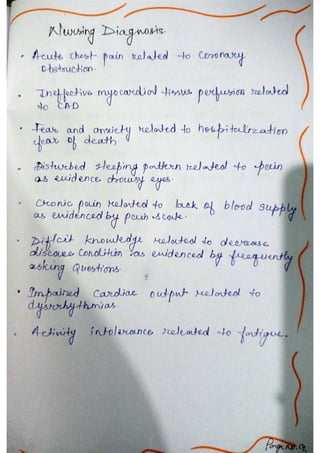 Nursing Diagnosis.
• Acute chest pain related to Coronary
Obstruction.
• Ineffective myocardial tissue perfusion related
to CAD
• Fear and anxiety related to hospitalization
fear of death
• Disturbed sleeping pattern related to pain
as evidence drowsy eyes.
• Cronic pain related to lack of blood supply
as evidenced by pain scale.
• Difficit knowledge related to decrease
disease Condition as evidenced by freequently
asking Questions.
• Impaired Cardiac output related to
dysrrhythmias.
• Activity intolerance releated to fartigue.